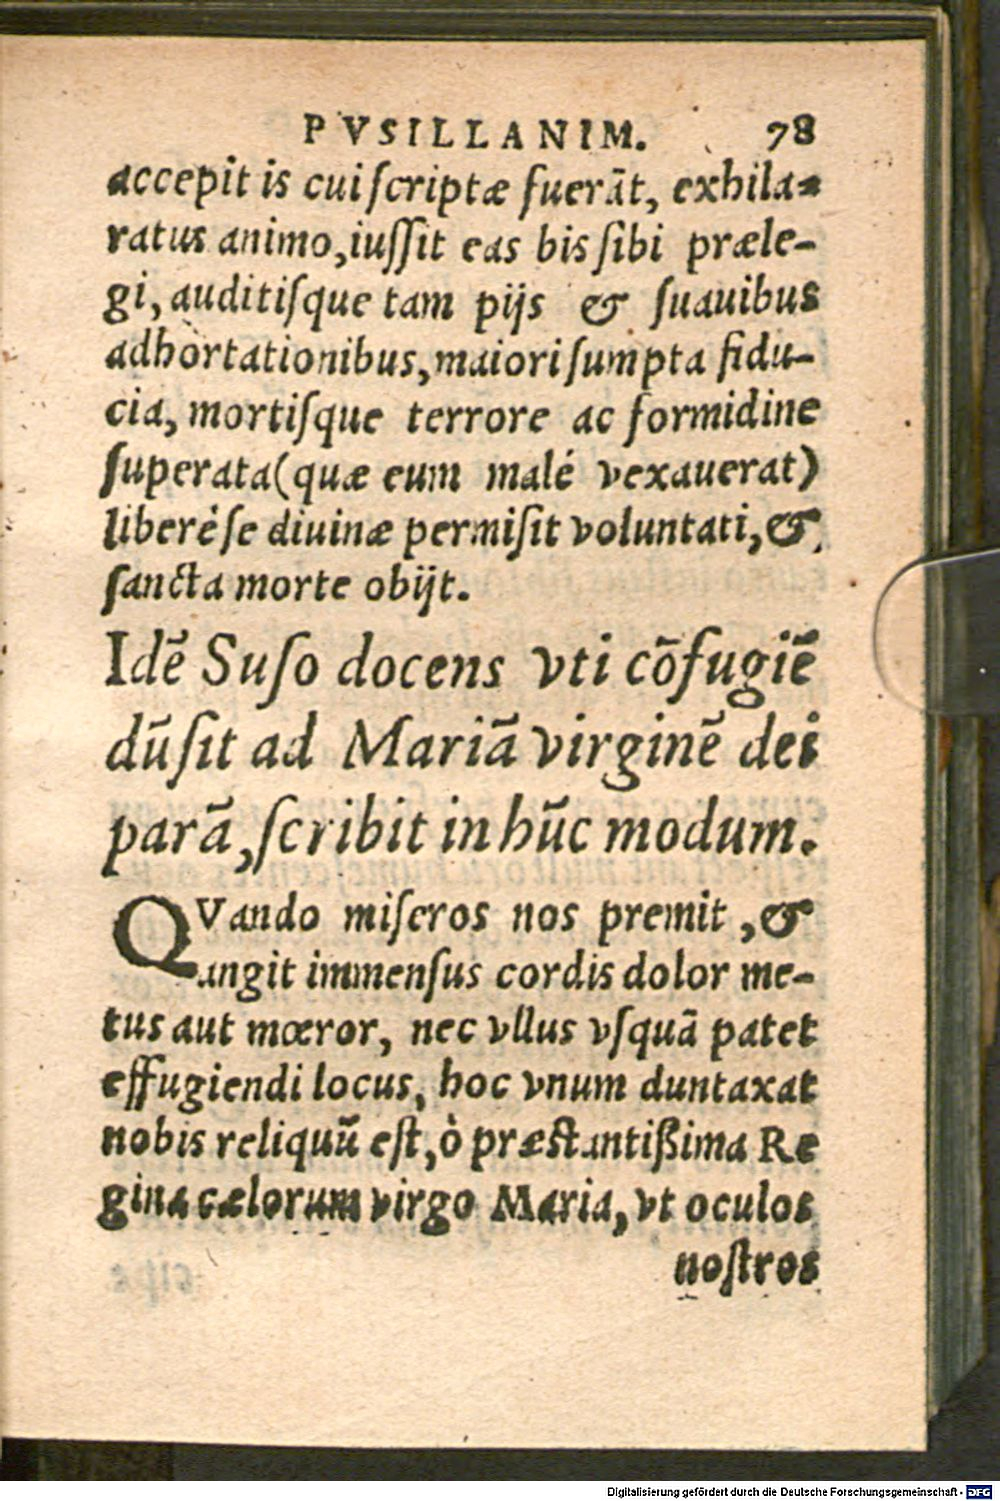 PVSILLANIM. 78
accepit is cui ſcriptæ fuerāt, exhila-
ratus animo, iuſſit eas bis ſibi præle-
gi, auditiſque tam pijs & ſuauibus
adhortationibus, maiori ſumpta fidu-
cia, mortiſque terrore ac formidine
ſuperata (quæ eum malé vexauerat)
liberè ſe diuinæ permiſit voluntati, &
ſancta morte obijt.
Idē Suſo docens vti cōfugiē
dū ſit ad Mariā virginē dei
parā, ſcribit in hūc modum.
QVando miſeros nos premit, &
angit immenſus cordis dolor me-
tus aut mœror, nec vllus vſquā patet
effugiendi locus, hoc vnum duntaxat
nobis reliquū eſt, ò præſtantißima Re
gina cælorum virgo Maria, vt oculos
noſtros
Digitalisierung gefördert durch die Deutsche Forschungsgemeinschaft - DFG